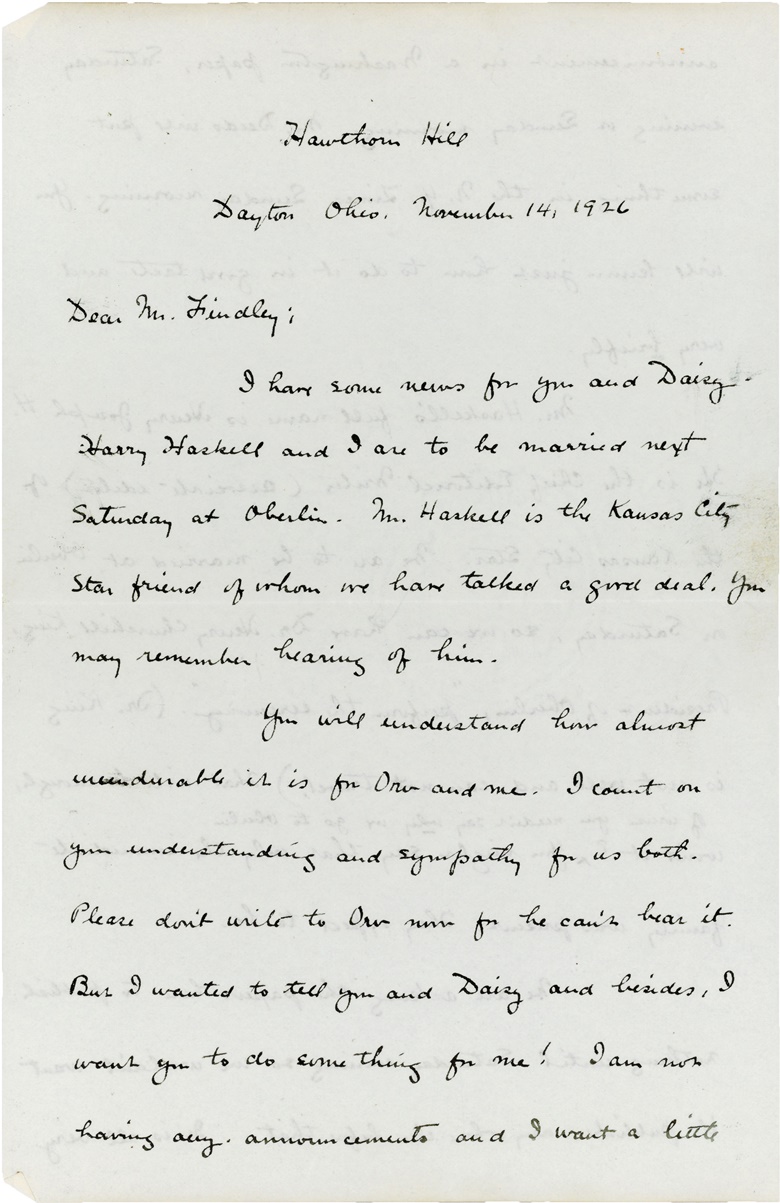 Hawthorn Hill
Dayton Ohio. November 14, 1926
Dear Mr. Findley;
I have some news for you and Daisy.
Harry Haskell and I are to be married next
Saturday at Oberlin. Mr. Haskell is the Kansas City
Star friend of whom we have talked a good deal. You
may remember hearing of him.
You will understand how almost
unendurable it is for Orv and me. I count on
your understanding and sympathy for us both.
Please don't write to Orv now for he can't bear it.
But I wanted to tell you and Daisy and besides, I
want you to do something for me! I am not
having any announcements and I want a little